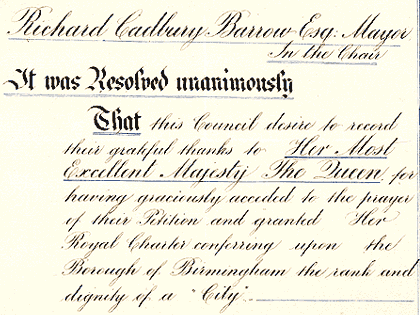 Richard Cadbury Barrow Esq: Mayor
In the Chair
It was Resolved unanimously
That this Council desire to record
their grateful thanks to Her Most
Excellent Majesty The Queen for
having graciously acceded to the prayer
of their Petition and granted Her
Royal Charter conferring upon the
Borough of Birmingham the rank and
dignity of a "City".